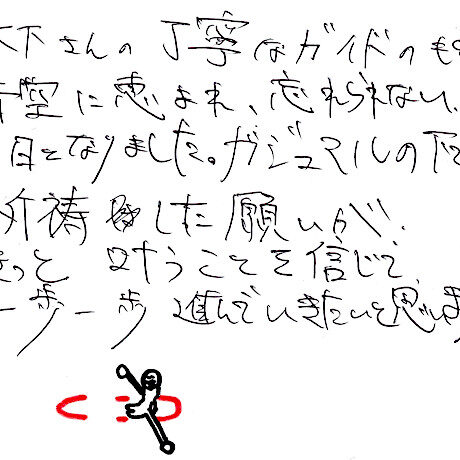 下さんの丁寧なガイドのも
空に恵まれ、忘れられない
日となりました。ガジュマルの下で
祈祷した願いが、
きっと叶うことを信じて、
一歩一歩進んでいきたいと思いま